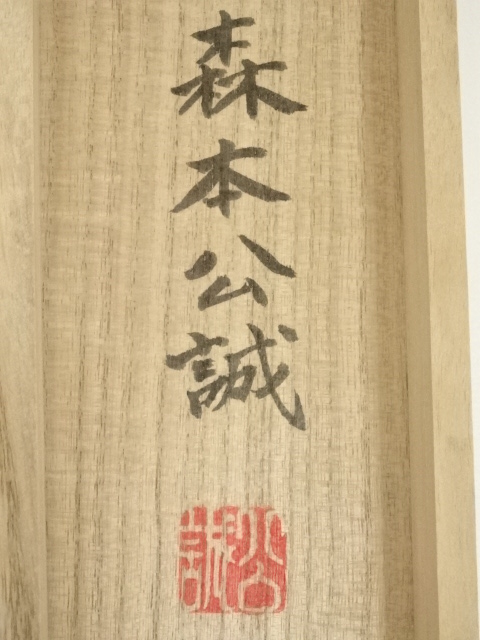 森本公誠
公誠